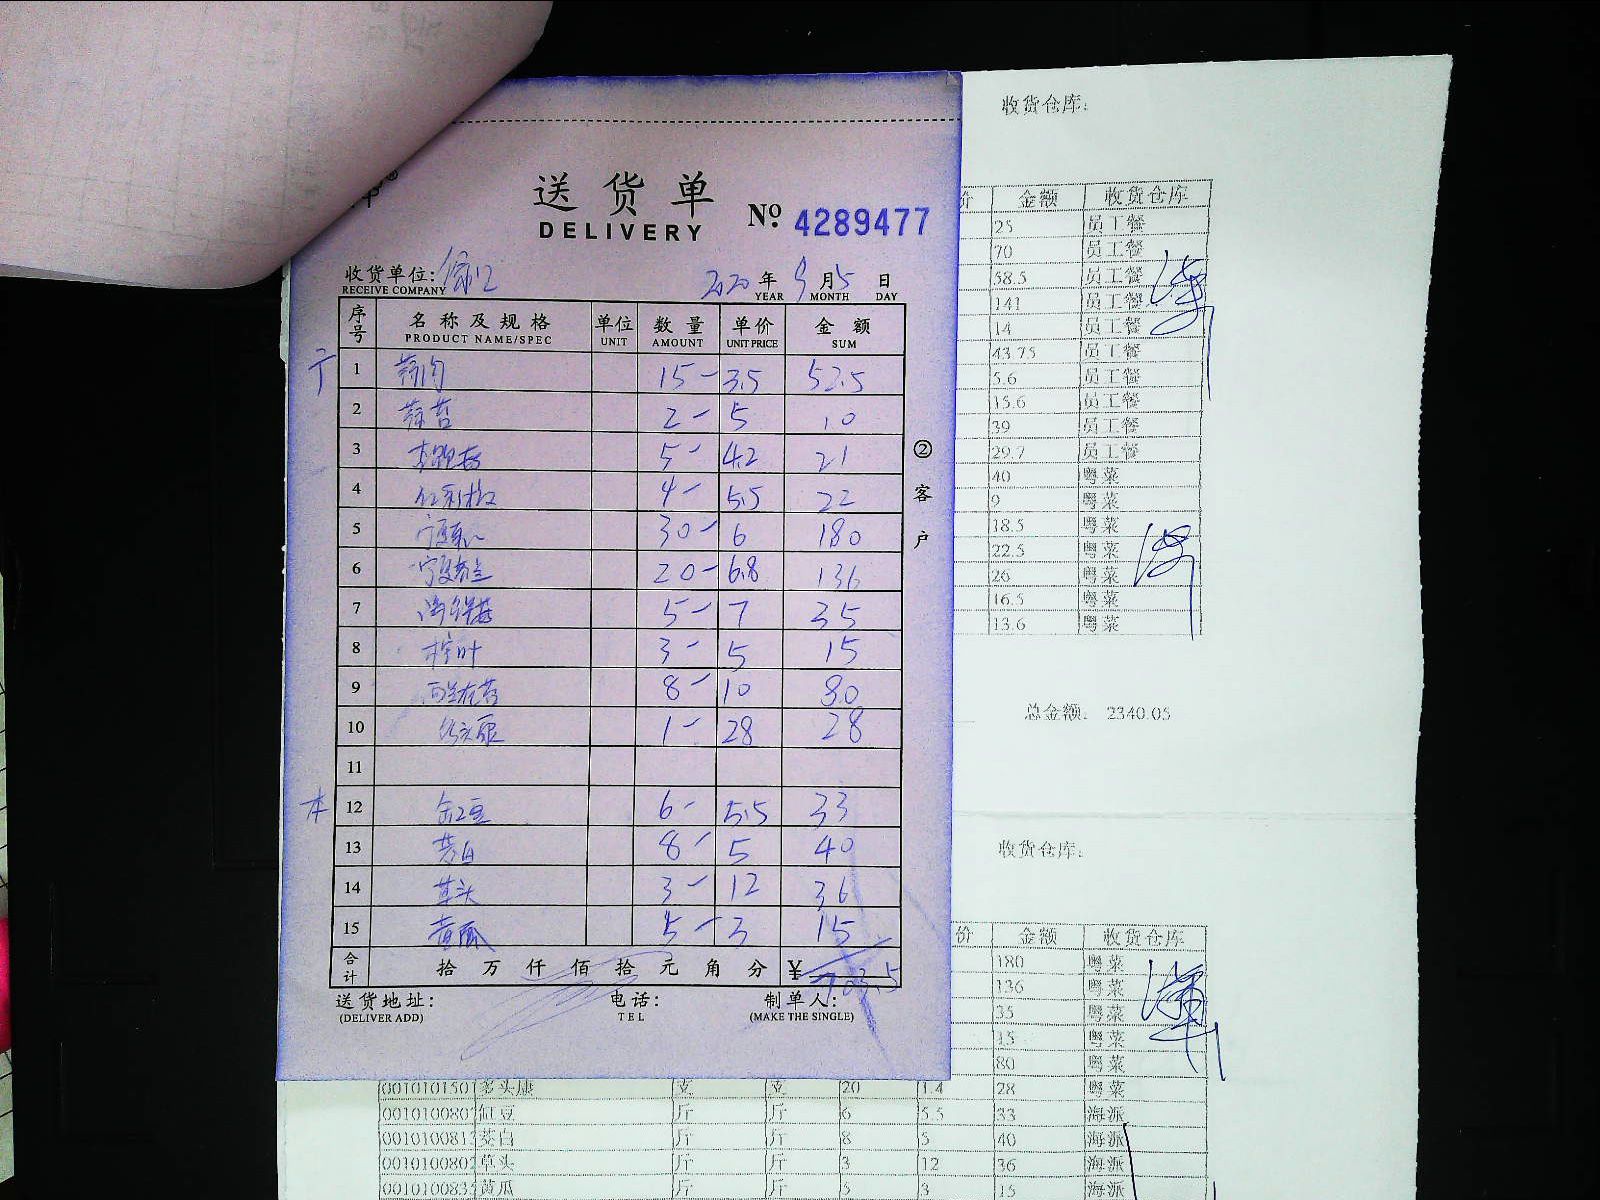 送货单
DELIVERY
№ 4289477
收货单位: 徐汇
RECEIVE COMPANY
2020 年 9 月 5 日
YEAR MONTH DAY
序号 名称及规格 单位 数量 单价 金额
PRODUCT NAME/SPEC UNIT AMOUNT UNIT PRICE SUM
1 15- 3.5 52.5
2 2- 5 10
3 5- 4.2 21
4 4- 5.5 22
5 30- 6 180
6 20- 6.8 136
7 5- 7 35
8 3- 5 15
9 8- 10 80
10 1- 28 28
11
本 12 缸豆 6- 5.5 33
13 茭白 8- 5 40
14 草头 3- 12 36
15 黄瓜 5- 3 15
合计 拾 万 仟 佰 拾 元 角 分 ¥ 703.5
送货地址: 电话: 制单人:
(DELIVER ADD) TEL (MAKE THE SINGLE)
②客户
收货仓库:
价 金额 收货仓库
25 员工餐
70 员工餐
58.5 员工餐
141 员工餐
14 员工餐
43.75 员工餐
5.6 员工餐
15.6 员工餐
39 员工餐
29.7 员工餐
40 粤菜
9 粤菜
18.5 粤菜
22.5 粤菜
26 粤菜
16.5 粤菜
13.6 粤菜
总金额: 2340.05
收货仓库:
价 金额 收货仓库
180 粤菜
136 粤菜
35 粤菜
15 粤菜
80 粤菜
001010150 多头康 支 支 20 1.4 28 粤菜
001010080 缸豆 斤 斤 6 5.5 33 海派
001010081 茭白 斤 斤 8 5 40 海派
001010080 草头 斤 斤 3 12 36 海派
001010083 黄瓜 斤 斤 5 3 15 海派